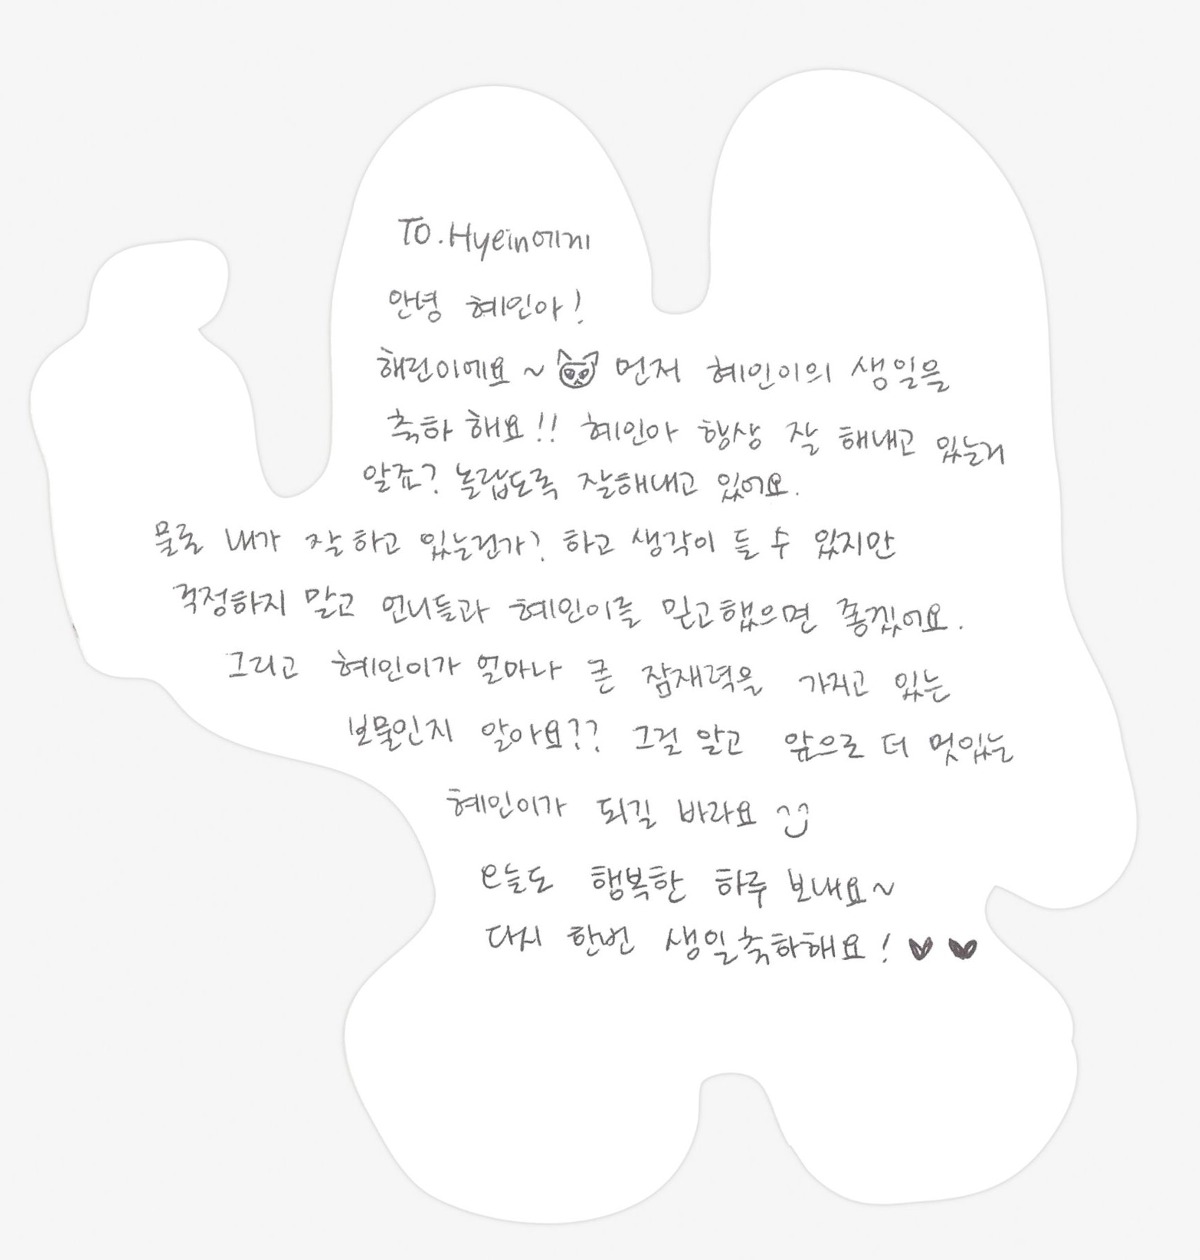 To. Hyein에게
안녕 혜인아!
해린이에요~ 먼저 혜인이의 생일을
축하 해요!! 혜인아 항상 잘 해내고 있는거
알죠? 놀랍도록 잘해내고 있어요.
물론 내가 잘하고 있는건가? 하고 생각이 들 수 있지만
걱정하지 말고 언니들과 혜인이를 믿고했으면 좋겠어요.
그리고 혜인이가 얼마나 큰 잠재력을 가지고 있는
보물인지 알아요?? 그걸 알고 앞으로 더 멋있는
혜인이가 되길 바라요
오늘도 행복한 하루 보내요~
다시 한번 생일축하해요! ♥ ♥